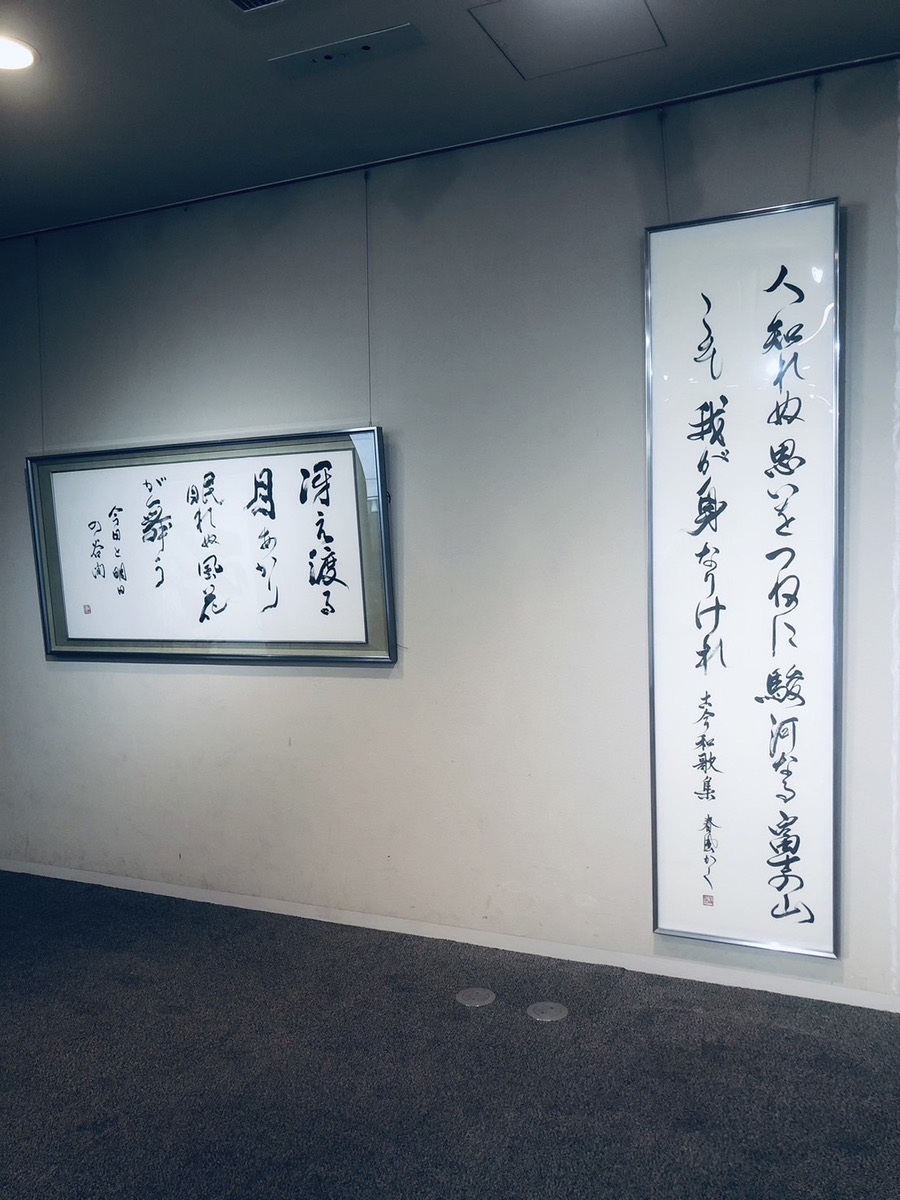 人知れぬ思いをつねに駿河なる富士山
こそ我が身なりけれ 古今和歌集
冴え渡る
月あかり
眠れぬ風花
が舞う
今日と明日
の谷間